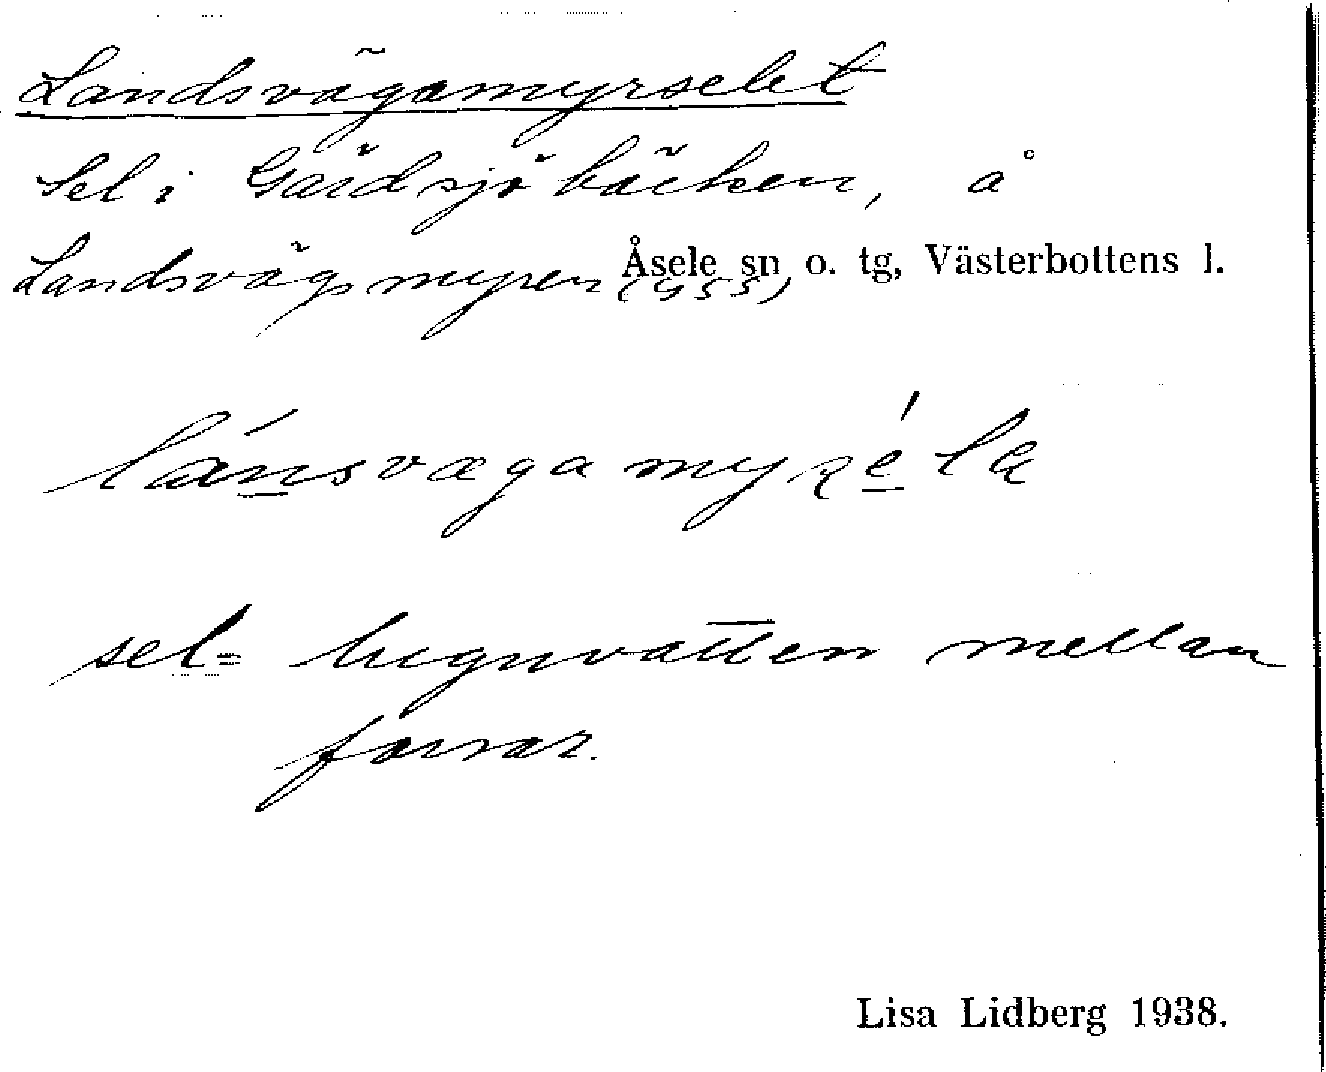 Landsvägamyrselet
Sel i Gärdsjöbäcken, å
Landsvägsmyren (955) Åsele sn o. tg, Västerbottens l.
lánsvægamyréla
sel = lugnvatten mellan
forsar.
Lisa Lidberg 1938.